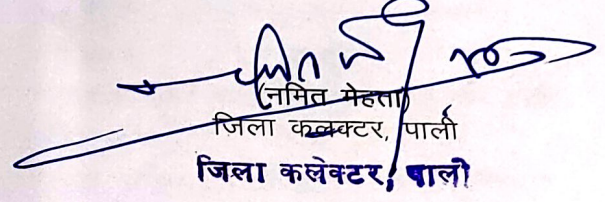 (नमित मेहता)
जिला कलक्टर, पाली
जिला कलेक्टर, पाली